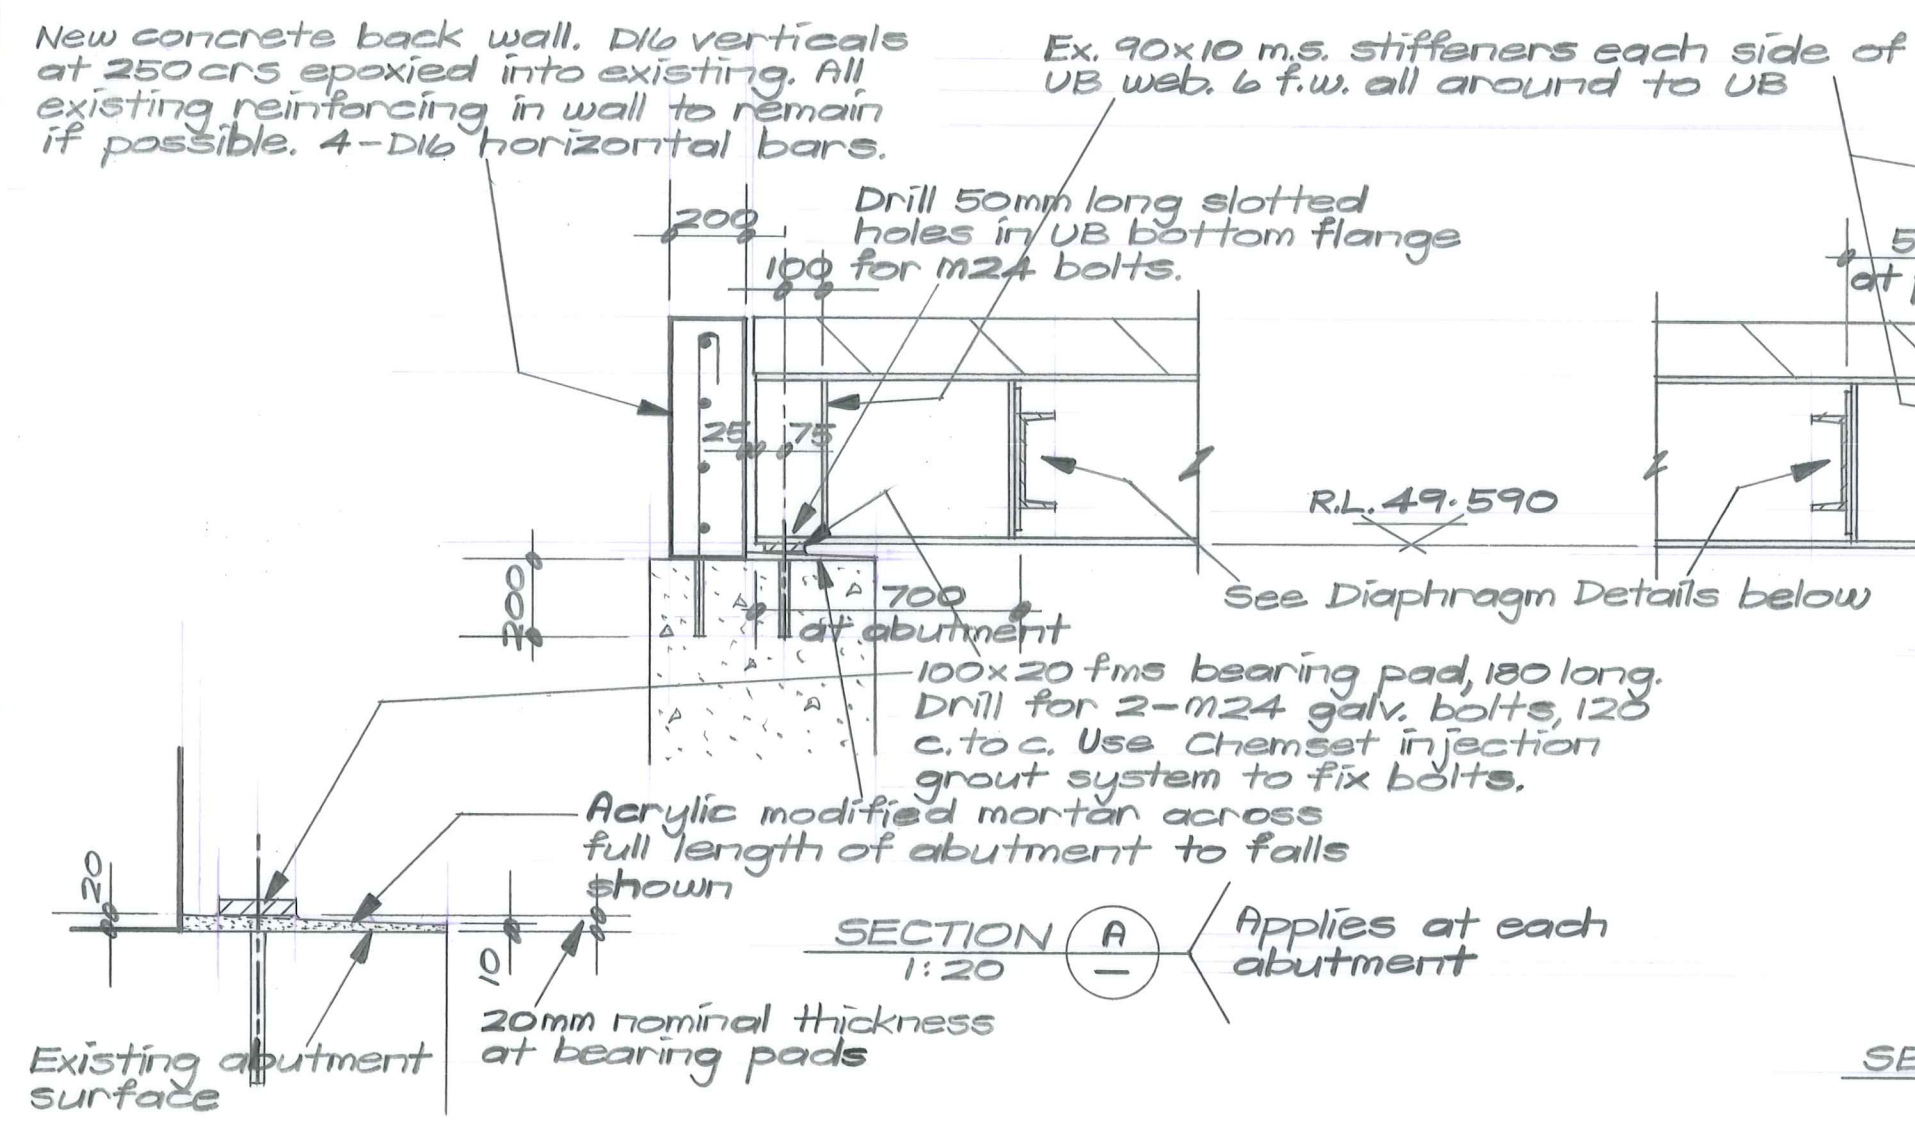 New concrete back wall. D16 verticals
at 250 crs epoxied into existing. All
existing reinforcing in wall to remain
if possible. 4-D16 horizontal bars.
Ex. 90x10 m.s. stiffeners each side of
UB web. 6 f.w. all around to UB
Drill 50mm long slotted
holes in UB bottom flange
for M24 bolts.
200
100
5
at
25
75
R.L. 49.590
200
700
at abutment
See Diaphragm Details below
100x20 fms bearing pad, 180 long.
Drill for 2-M24 galv. bolts, 120
c. to c. Use Chemset injection
grout system to fix bolts.
Acrylic modified mortar across
full length of abutment to falls
shown
20
10
SECTION A
1:20
Applies at each
abutment
20mm nominal thickness
at bearing pads
Existing abutment
surface
SE